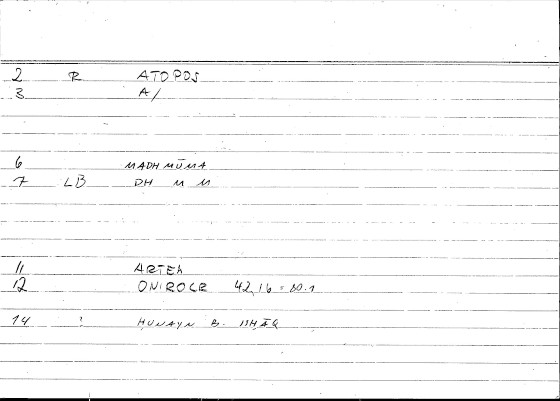 2 R ATOPOS
3 A/
6 MADHMŪMA
7 LB DH M M
11 ARTEM
12 ONIROCR 42,16 = 80.1
14 : ḤUNAYN B. ISḤĀQ